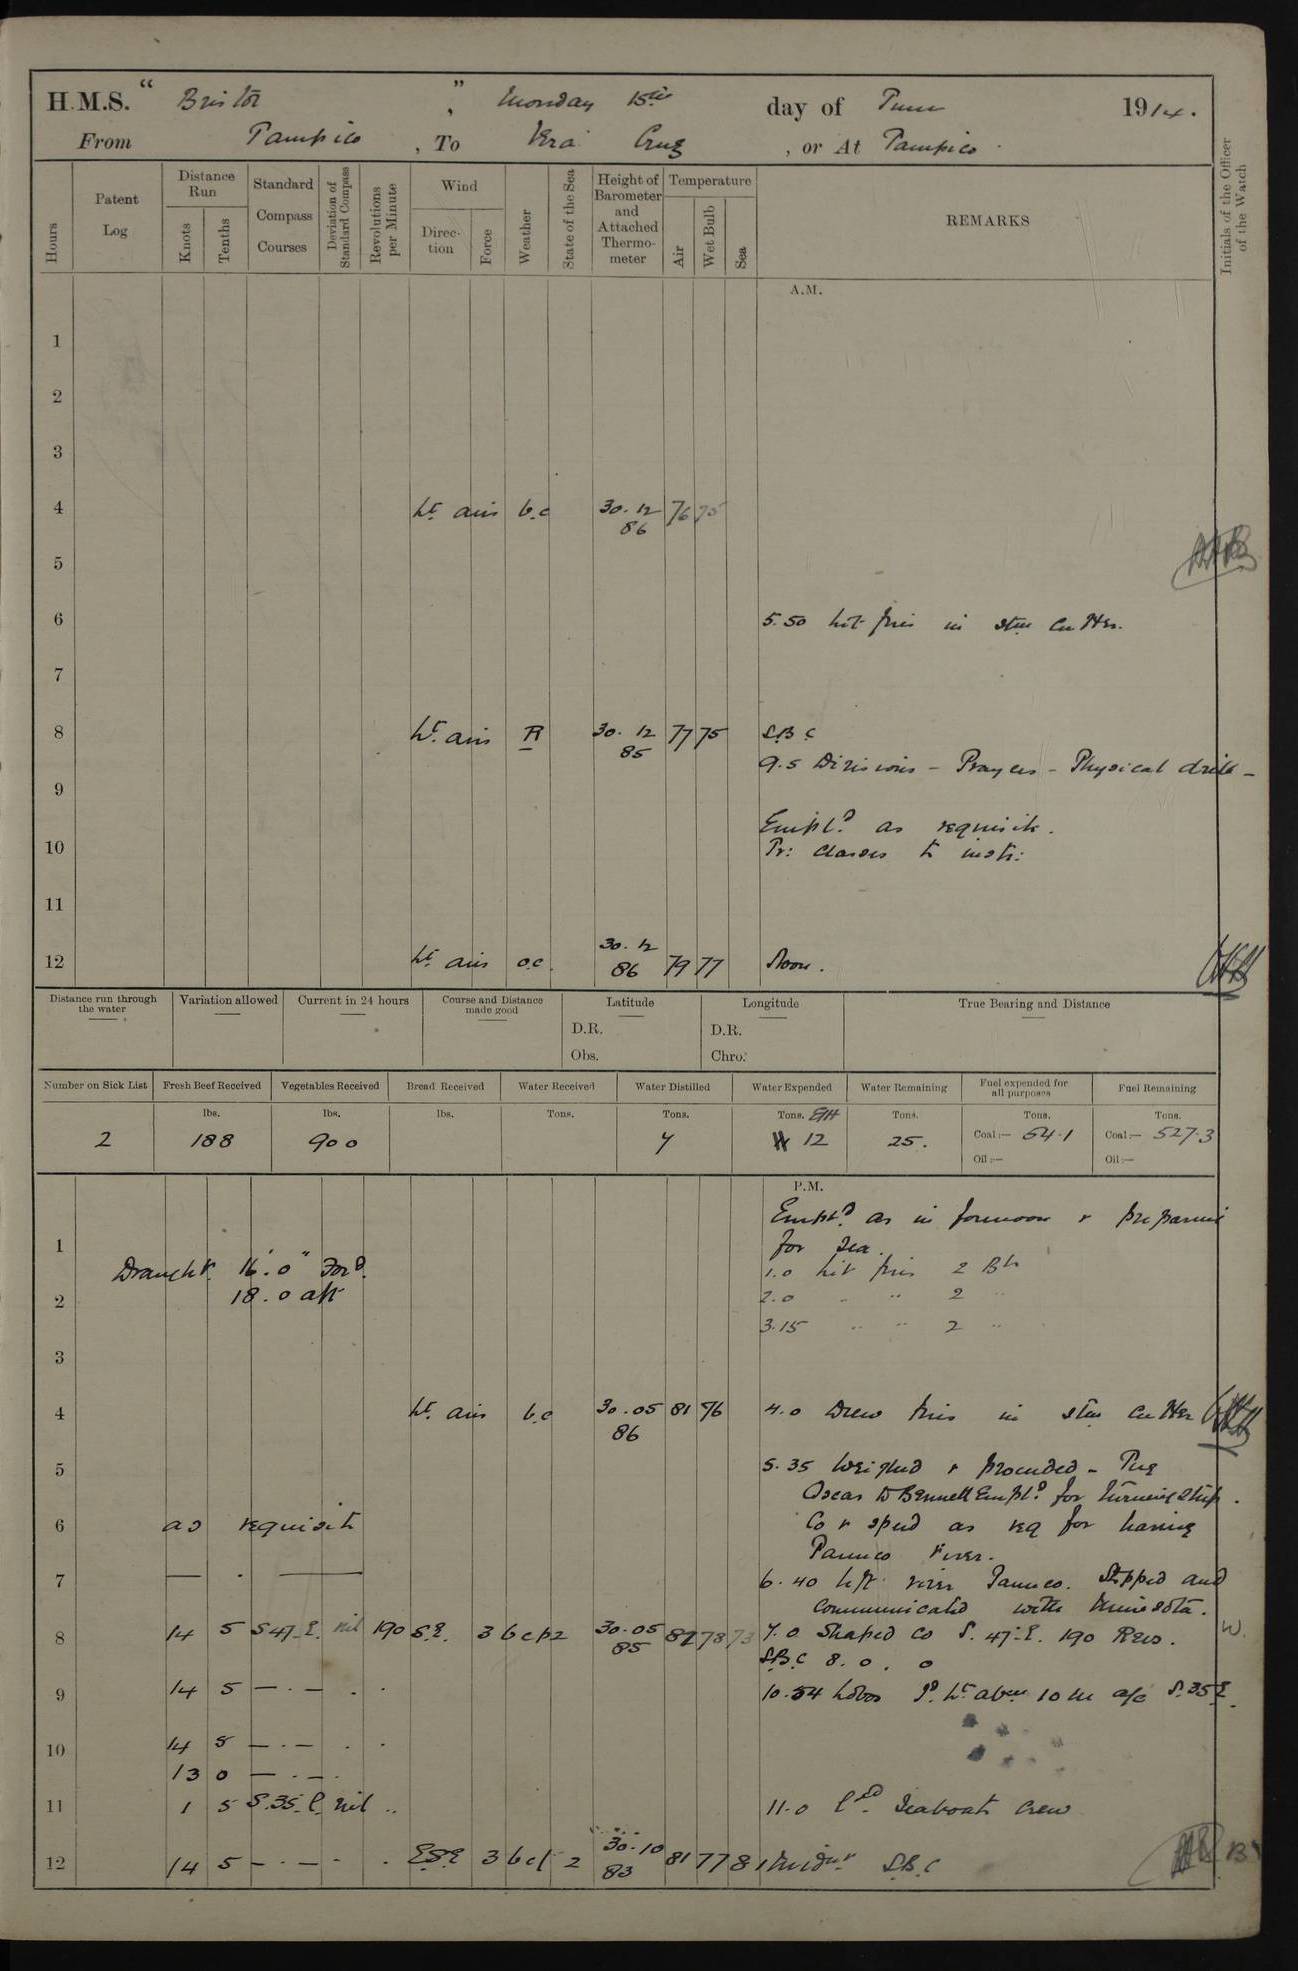 H.M.S. "Bristol", Monday 15th day of June 1914.
From Tampico, To Vera Cruz, or At Tampico.
Hours
Patent Log
Distance Run
Knots
Tenths
Standard Compass Courses
Deviation of Standard Compass
Revolutions per Minute
Wind
Direction
Force
Weather
State of the Sea
Height of Barometer and Attached Thermometer
Temperature
Air
Wet Bulb
Sea
REMARKS
Initials of the Officer of the Watch
A.M.
1
2
3
4 Lt. airs b.c 30.12 86 76 75
5
6 5.50 lit fires in stm cutter.
7
8 Lt. airs R 30.12 85 77 75 S.B.C
9.5 Divisions - Prayers - Physical drill -
9
Empld. as requisite.
10 Pr: Classes to instr:
11
12 Lt. airs o.c. 30.12 86 79 77 Noon.
Distance run through the water
Variation allowed
Current in 24 hours
Course and Distance made good
Latitude
D.R.
Obs.
Longitude
D.R.
Chro:
True Bearing and Distance
Number on Sick List
Fresh Beef Received
Vegetables Received
Bread Received
Water Received
Water Distilled
Water Expended
Water Remaining
Fuel expended for all purposes
Fuel Remaining
lbs. lbs. lbs. Tons. Tons. Tons. Tons. Tons. Tons.
2 188 900 7 12 25. Coal:— 54.1 Coal:— 527.3
Oil:— Oil:—
P.M.
Empld. as in forenoon & preparing
for sea.
1 Draught. 16'.0" Ford. 1.0 lit fires 2 Brs
2 18.0 aft 2.0 " " 2 "
3.15 " " 2 "
3
4 Lt. airs b.c 30.05 86 81 76 4.0 Drew fires in stm cutter
5 5.35 Weighed & proceeded - Tug
Oscar D Bennett Empld. for turning ship.
6 as requisite Co & speed as req for leaving
Panuco river.
7 — . — 6.40 left river Panuco. Stopped and
communicated with Minnesota.
8 14 5 S 47 E. nil 190 S.E. 3 bcp 2 30.05 85 82 78 73 7.0 Shaped co S. 47 E. 190 Revs. W.
S.B.C 8.0.0
9 14 5 — . — . . 10.54 Lobos Id. Lt. abm 10 m a/c S.35 E.
10 14 5 — . — . .
13 0 — . — .
11 1 5 S.35 E. nil .. 11.0 Exd. Seaboats crew
12 14 5 — . — . . E.S.E 3 bcl 2 30.10 83 81 77 81 Midnt. S.B.C